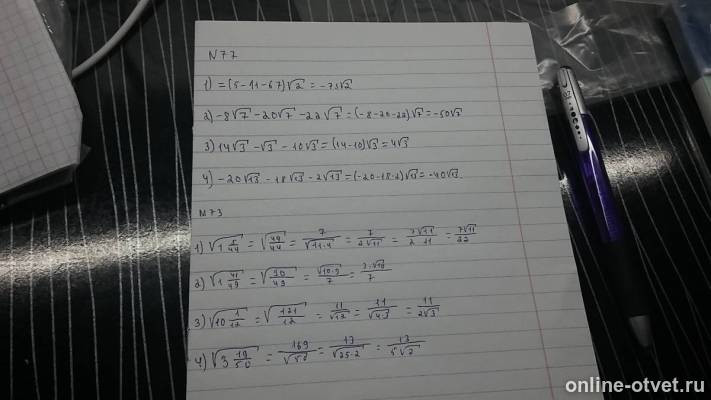 N77
1) =(5-11-67)√2 = -73√2
2) -8√7 -20√7 -22√7 =(-8-20-22)√7=-50√7
3) 14√3 -√3 -10√3=(14-10)√3=4√3
4) -20√13 -18√13 -2√13=(-20-18-2)√13=-40√13.
N73
1) √1 5/44 = √49/44 = 7/√11·4 = 7/2√11 = 7√11/2 11 = 7√11/22
2) √1 41/49 = √90/49 = √10·9/7 = 3·√10/7
3) √10 1/12 = √121/12 = 11/√12 = 11/√4·3 = 11/2√3
4) √3 19/50 = 169/√50 = 13/√25·2 = 13/5√2
online-otvet.ru